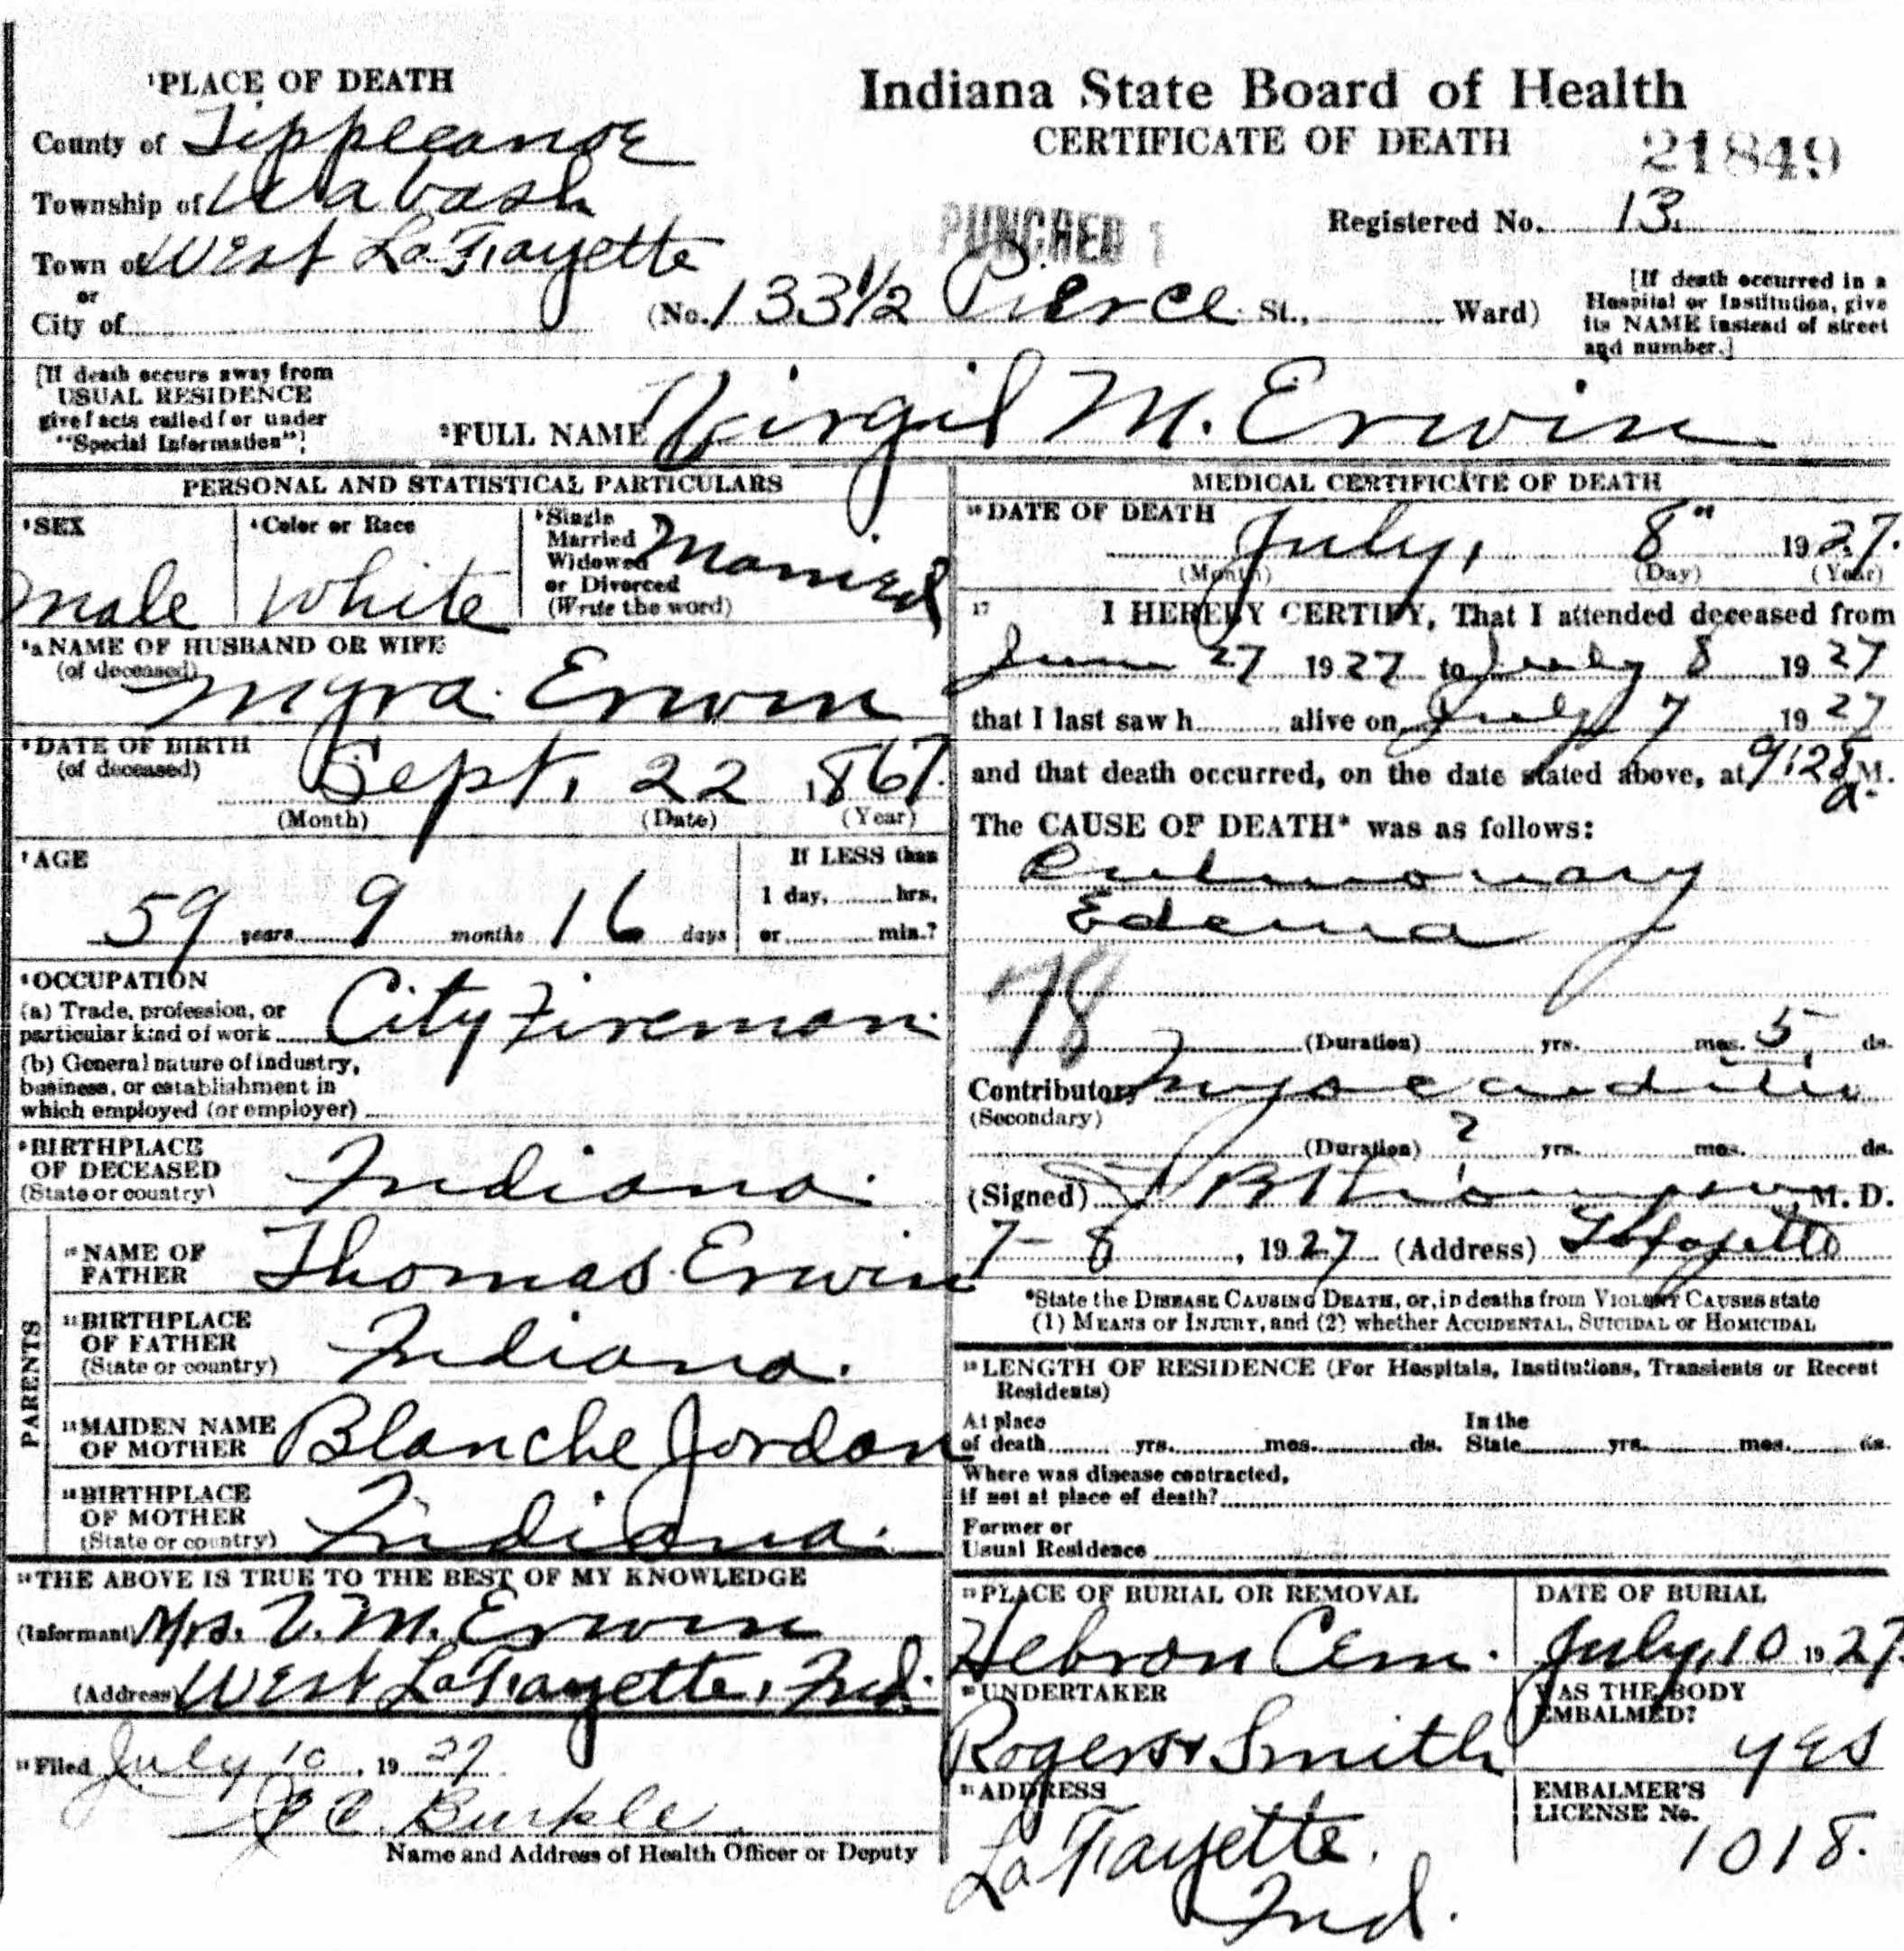 ¹PLACE OF DEATH
County of Tippecanoe
Township of Wabash
Town of West LaFayette
or
City of
Indiana State Board of Health
CERTIFICATE OF DEATH
21849
PUNCHED 1
Registered No. 13.
(No. 133 1/2 Pierce St., Ward)
[If death occurred in a
Hospital or Institution, give
its NAME instead of street
and number.]
[If death occurs away from
USUAL RESIDENCE
give facts called for under
"Special Information"]
²FULL NAME Virgil M. Erwin
PERSONAL AND STATISTICAL PARTICULARS
³SEX
male
⁴Color or Race
White
⁵Single
Married
Widowed
or Divorced
(Write the word)
Married
⁵a NAME OF HUSBAND OR WIFE
(of deceased)
Myra Erwin
⁶DATE OF BIRTH
(of deceased)
Sept. 22 1867.
(Month) (Date) (Year)
⁷AGE
59 years 9 months 16 days
If LESS than
1 day, hrs.
or min.?
⁸OCCUPATION
(a) Trade, profession, or
particular kind of work City Fireman.
(b) General nature of industry,
business, or establishment in
which employed (or employer)
⁹BIRTHPLACE
OF DECEASED
(State or country)
Indiana.
PARENTS
¹⁰NAME OF
FATHER
Thomas Erwin
¹¹BIRTHPLACE
OF FATHER
(State or country)
Indiana.
¹²MAIDEN NAME
OF MOTHER
Blanche Jordan
¹³BIRTHPLACE
OF MOTHER
(State or country)
Indiana.
¹⁴THE ABOVE IS TRUE TO THE BEST OF MY KNOWLEDGE
(Informant) Mrs. V. M. Erwin
(Address) West LaFayette, Ind.
¹⁵Filed July 10, 1927
C. Burkle
Name and Address of Health Officer or Deputy
MEDICAL CERTIFICATE OF DEATH
¹⁶DATE OF DEATH
July, 8" 1927.
(Month) (Day) (Year)
¹⁷ I HEREBY CERTIFY, That I attended deceased from
June 27 1927 to July 8 1927
that I last saw h alive on July 7 1927
and that death occurred, on the date stated above, at 9:28 M.
a.
The CAUSE OF DEATH* was as follows:
Pulmonary
Edema
78
(Duration) yrs. mos. 5 ds.
Contributory Myocarditis
(Secondary)
(Duration) ? yrs. mos. ds.
(Signed) B Thompson, M. D.
7-8, 1927 (Address) Lafayette
*State the DISEASE CAUSING DEATH, or, in deaths from VIOLENT CAUSES state
(1) MEANS OF INJURY, and (2) whether ACCIDENTAL, SUICIDAL or HOMICIDAL
¹⁸LENGTH OF RESIDENCE (For Hospitals, Institutions, Transients or Recent
Residents)
At place
of death yrs. mos. ds.
In the
State yrs. mos. ds.
Where was disease contracted,
if not at place of death?
Former or
Usual Residence
¹⁹PLACE OF BURIAL OR REMOVAL
Hebron Cem.
DATE OF BURIAL
July, 10 1927.
²⁰UNDERTAKER
Rogers & Smith
WAS THE BODY
EMBALMED?
yes
²¹ADDRESS
LaFayette,
Ind.
EMBALMER'S
LICENSE No.
1018.